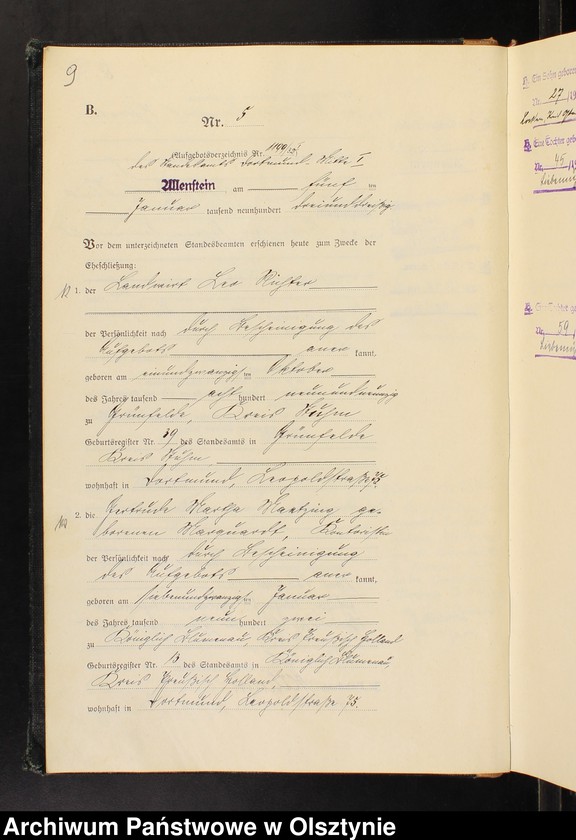 9
B.
Nr. 5
Aufgebotsverzeichnis Nr. 1100
des Standesamts Dortmund Mitte I
Allenstein am fünf ten
Januar tausend neunhundert dreiunddreißig
Vor dem unterzeichneten Standesbeamten erschienen heute zum Zwecke der
Eheschließung:
1. der Landwirt Leo Richter
der Persönlichkeit nach durch Bescheinigung des
Aufgebots aner kannt,
geboren am einundzwanzigsten Oktober
des Jahres tausend acht hundert neunundneunzig
zu Grünfelde, Kreis Stuhm
Geburtsregister Nr. 39 des Standesamts in Grünfelde
Kreis Stuhm
wohnhaft in Dortmund, Leopoldstraße 75.
2. die Gertrude Martha ge-
borenen Marquardt, Kontoristin
der Persönlichkeit nach durch Bescheinigung
des Aufgebots aner kannt,
geboren am siebenundzwanzigsten Januar
des Jahres tausend neun hundert zwei
zu Königlich Blumenau, Kreis Preußisch Holland
Geburtsregister Nr. des Standesamts in Königlich Blumenau,
Kreis Preußisch Holland,
wohnhaft in Dortmund, Leopoldstraße 75.
Ein Sohn geboren
Nr. 27
Eine Tochter geboren
Nr. 45
Nr. 59
Archiwum Państwowe w Olsztynie